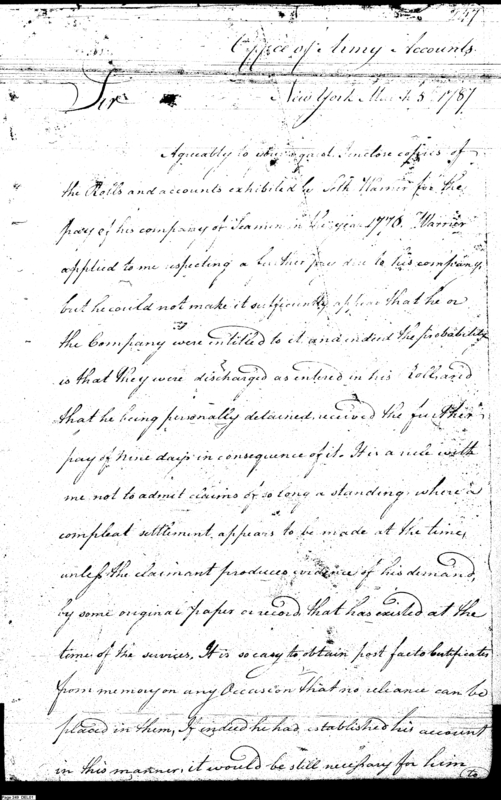 257
Office of Army Accounts
New York March 3 1787
Sir
Agreeably to your request I enclose copies of
the Rolls and accounts exhibited by Seth Warner for the
pay of his company of Seamen in the year 1776. Warner
applied to me respecting a further pay due to his company,
but he could not make it sufficiently appear that he or
the Company were entitled to it and indeed the probability
is that they were discharged as entered in his Roll and
that he being personally detained received the further
pay of nine days in consequence of it. It is a rule with
me not to admit claims of so long a standing where a
compleat settlement appears to be made at the time,
unless the claimant produces evidence of his demand,
by some original paper or record that has existed at the
time of the services. It is so easy to obtain post facto Certificates
from memory on any Occasion that no reliance can be
placed in them, If indeed he had established his account
in this manner it would be still necessary for him
to